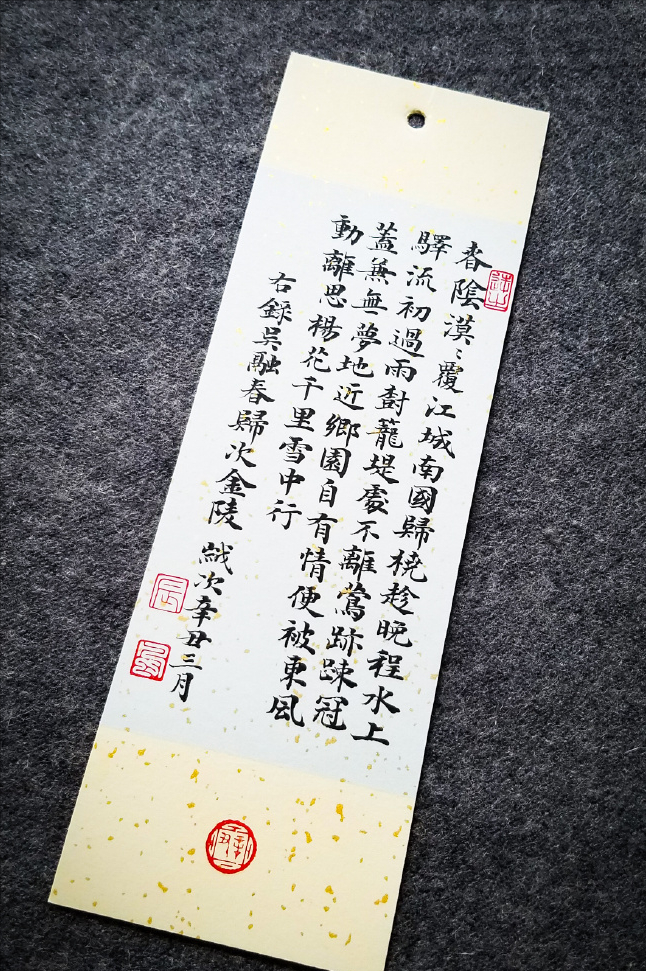 春陰漠〻覆江城南國歸橈趁晚程水上
驛流初過雨樹籠堤處不離鶯跡疎冠
蓋兼無夢地近鄉園自有情便被東風
動離思楊花千里雪中行
右錄吳融春歸次金陵
歲次辛丑三月